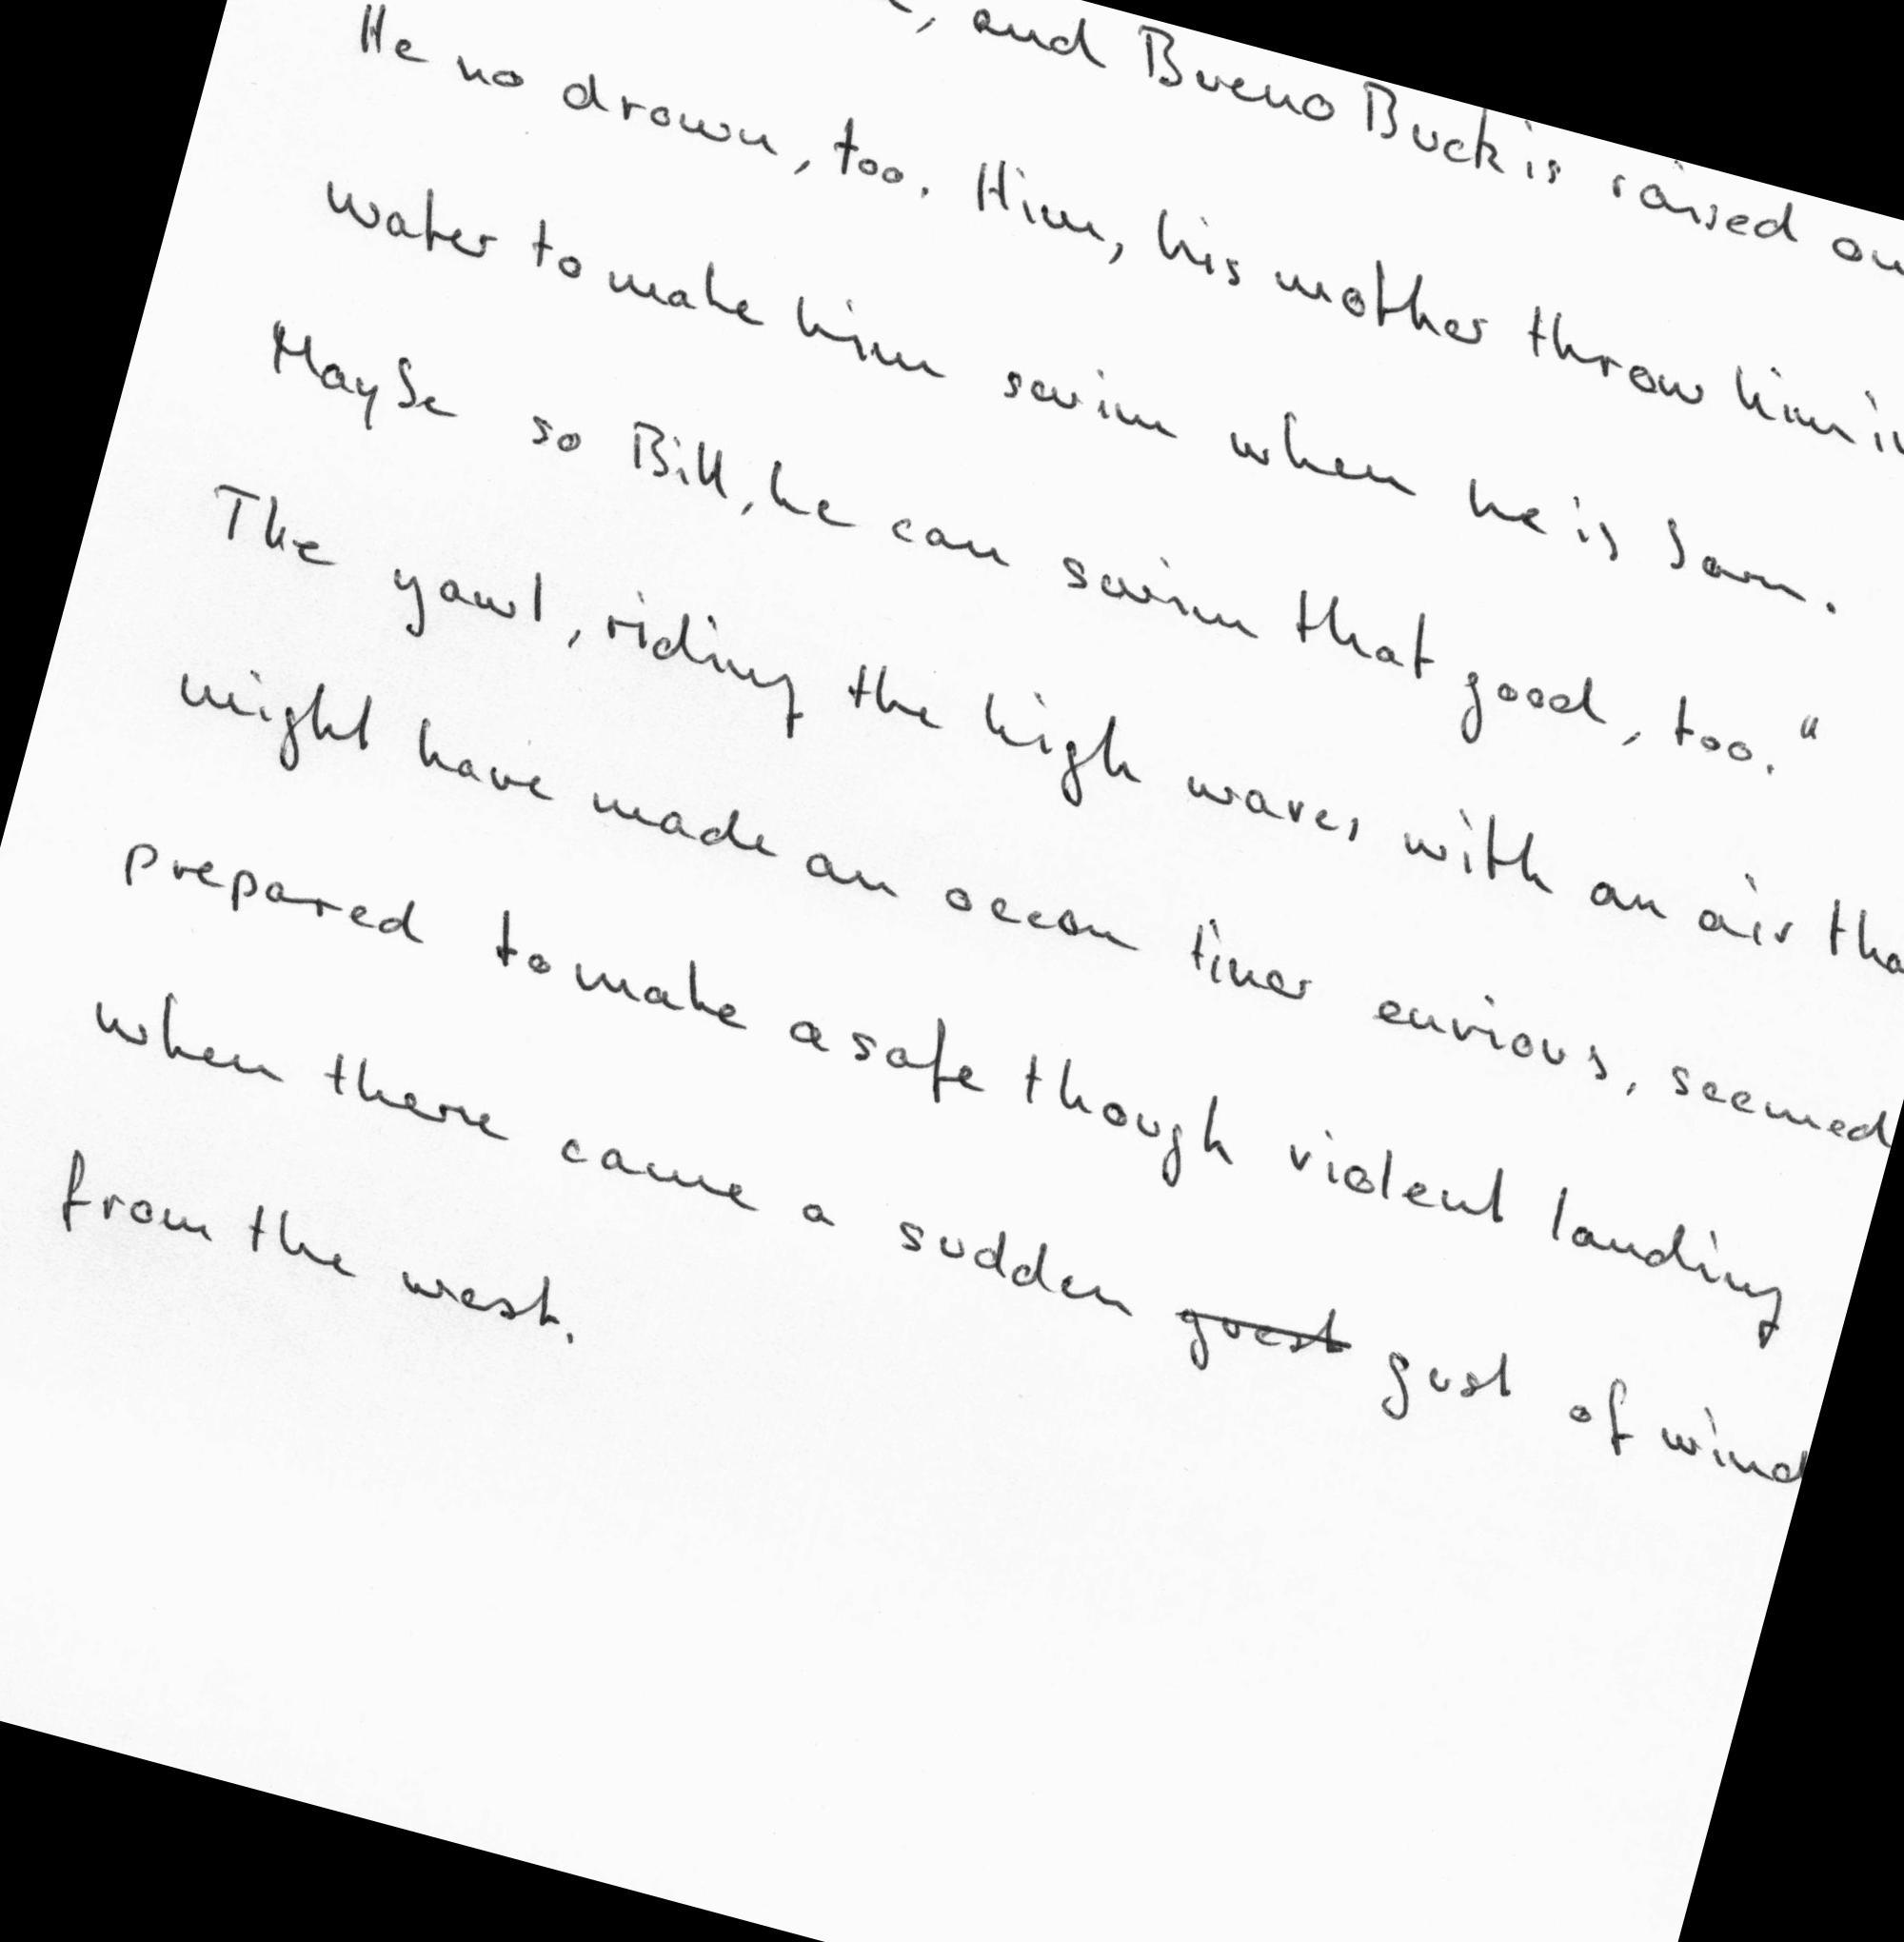 , and Bueno Buck is raised on
He no drown, too. Him, his mother throw him in
water to make him swim when he is born.
Maybe so Bill, he can swim that good, too."
The yawl, riding the high waves with an air tha
might have made an ocean liner envious, seemed
prepared to make a safe though violent landing
when there came a sudden guest gust of wind
from the west.